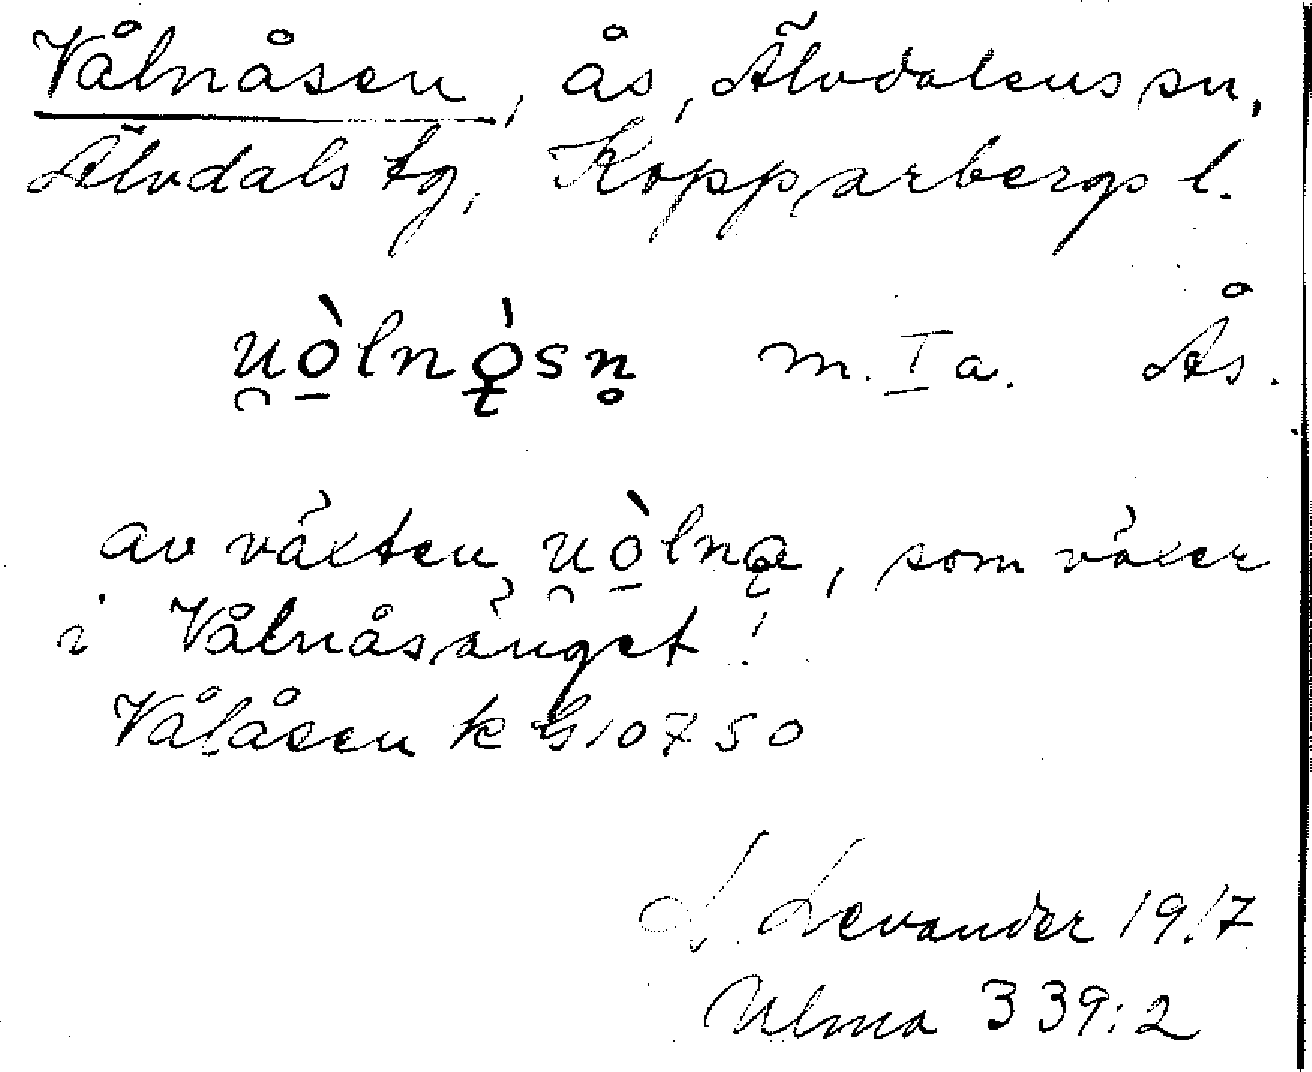 Vålnåsen, ås, Älvdalens sn,
Älvdals tg, Kopparbergs l.
u̯ò̱lnǫ̀sn̥ m. I a. Ås.
av växten u̯ò̱lną, som växer
i Vålnåsänget!
Vålåsen k G10750
L. Levander 1917
Ulma 339:2